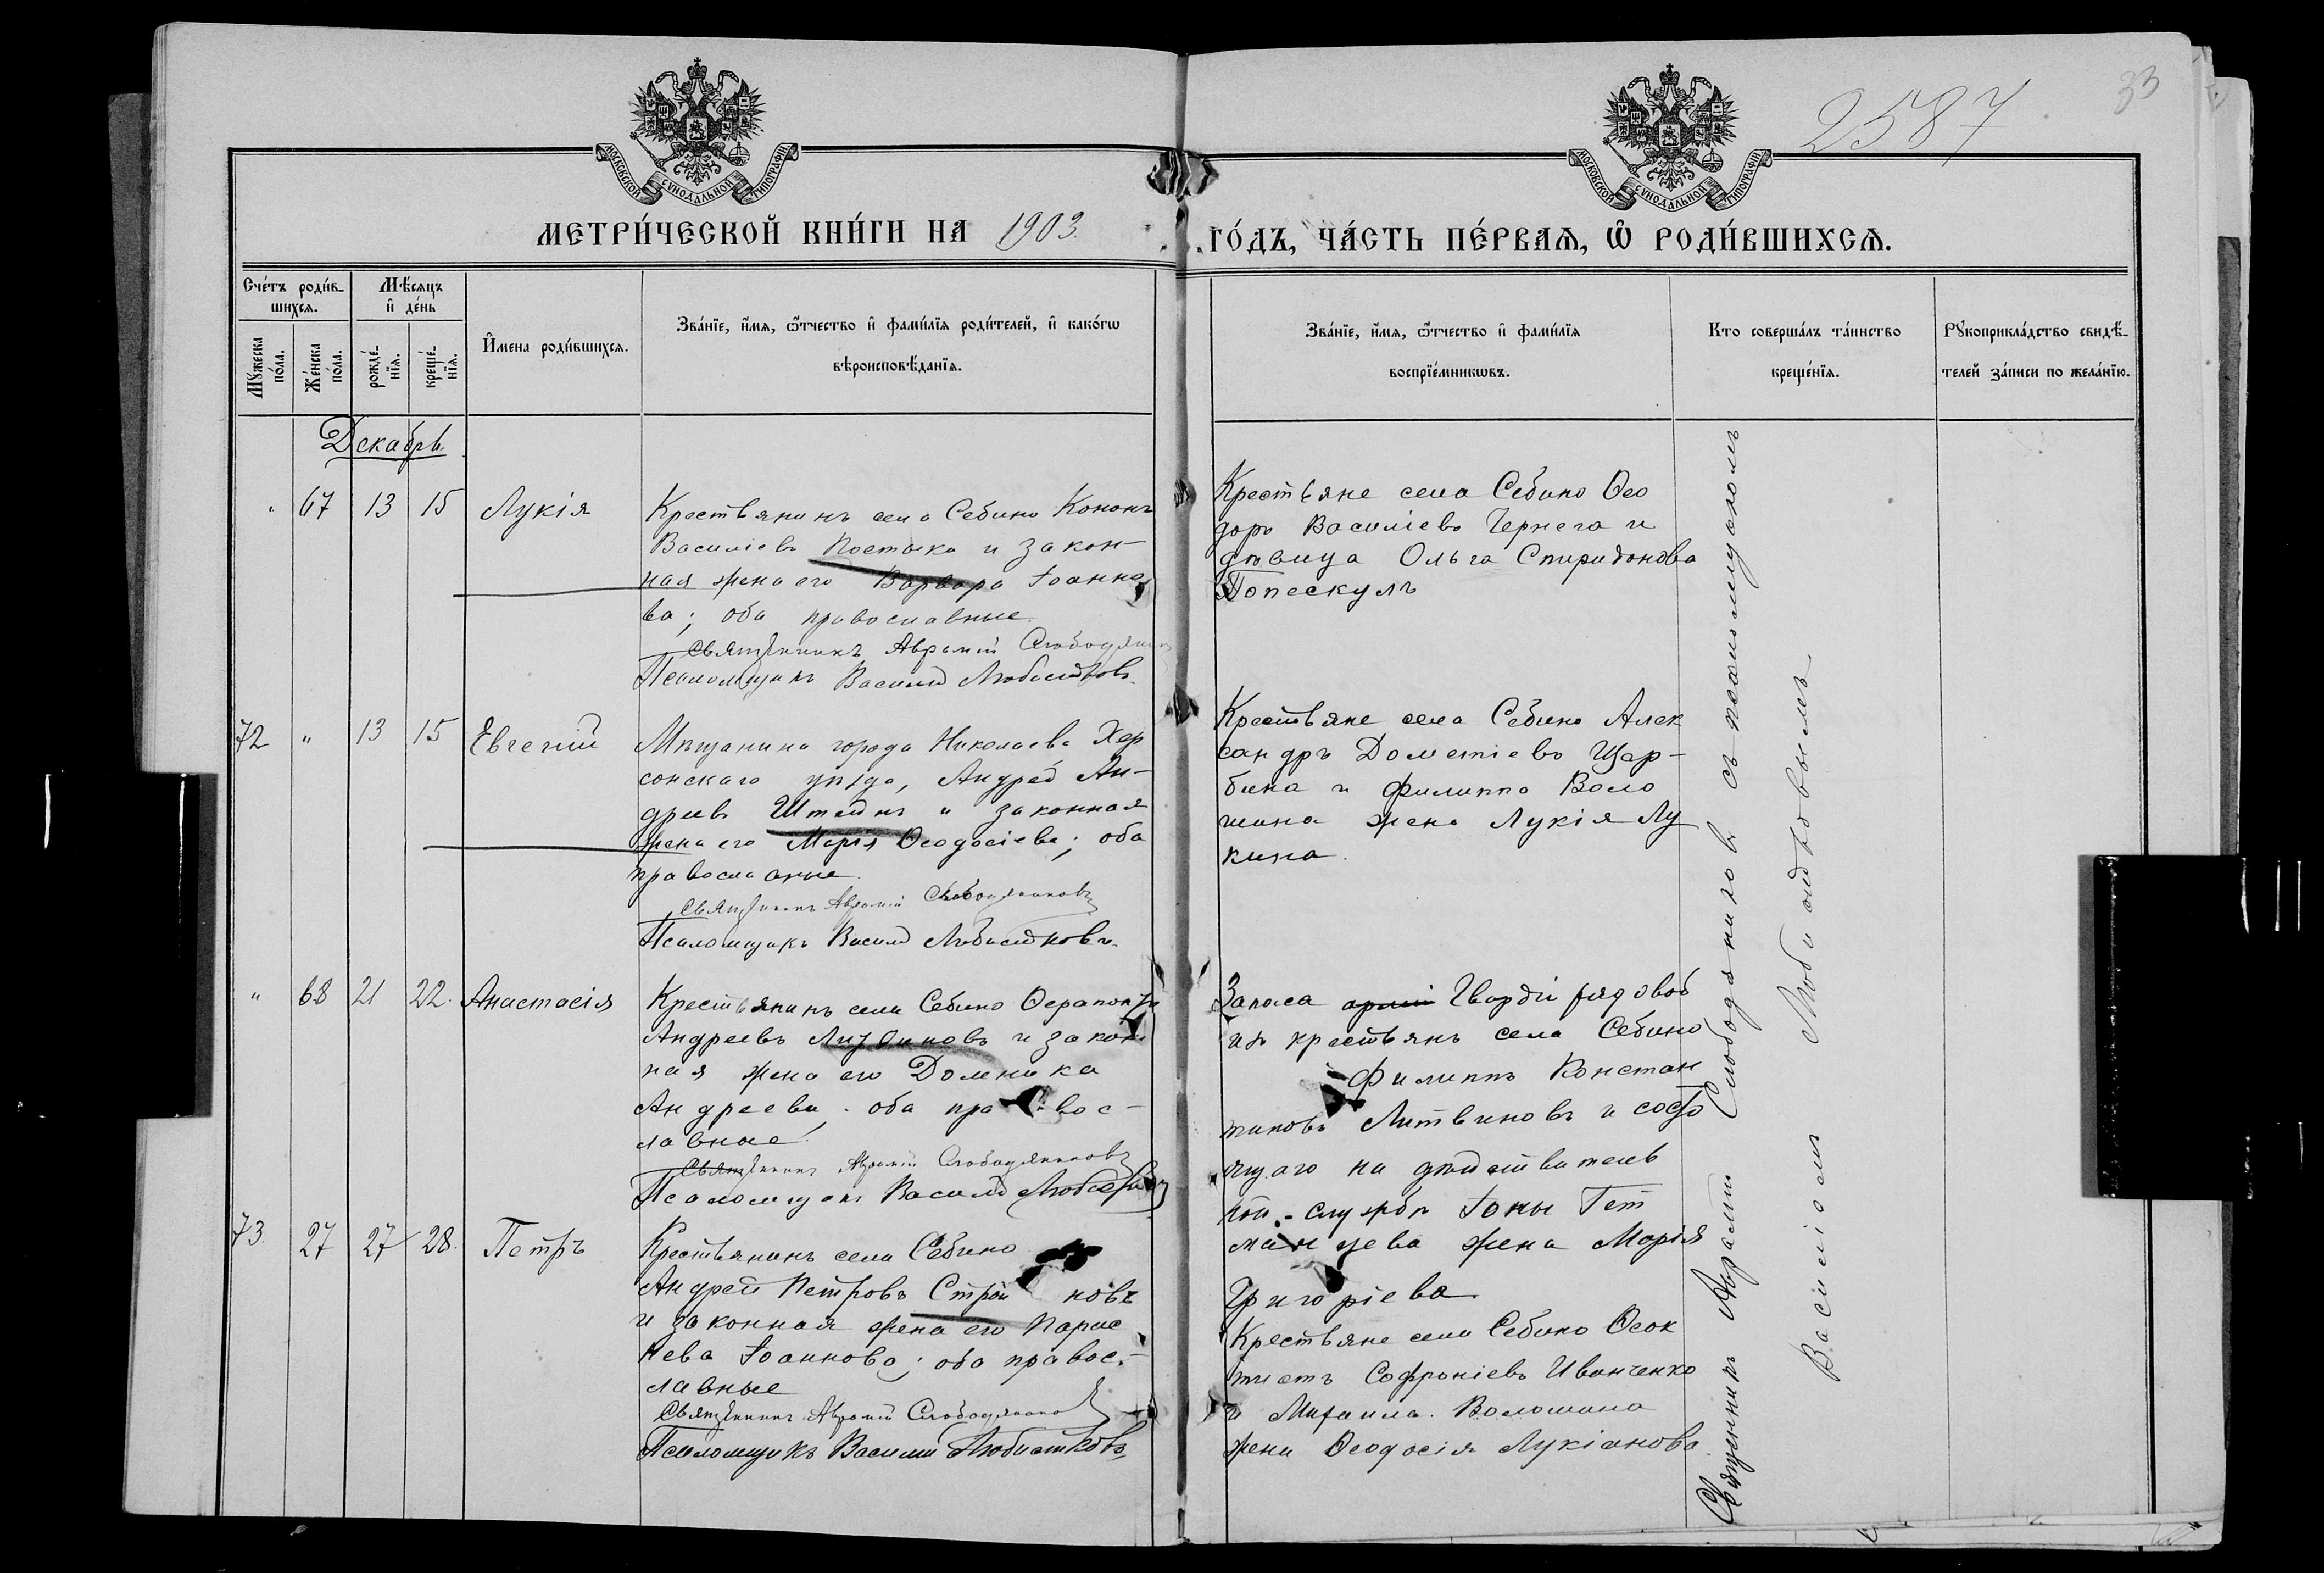 2587
33
МОСКОВСКОЙ СѴНОДАЛЬНОЙ ТИПОГРАФІИ
МОСКОВСКОЙ СѴНОДАЛЬНОЙ ТИПОГРАФІИ
МЕТРИ́ЧЕСКОЙ КНИ́ГИ НА 1903. ГО́ДЪ, ЧА́СТЬ ПЕ́РВАѦ, Ѽ РОДИ́ВШИХСѦ.
Сче́тъ роди́в-
шихсѧ.
Мꙋ́жеска
по́ла.
Же́нска
по́ла.
Мѣ́сяцъ
и҆ де́нь
рожде́-
нїѧ.
креще́-
нїѧ.
И҆́мена роди́вшихсѧ.
Зва́нїе, и҆́мѧ, ѻ҆́тчество и҆ фами́лїѧ роди́телей, и҆ како́гѡ
вѣроисповѣ́данїѧ.
Зва́нїе, и҆́мѧ, ѻ҆́тчество и҆ фами́лїѧ
воспрїе́мникѡвъ.
Кто соверша́лъ та́инство
креще́нїѧ.
Рꙋкоприкла́дство свидѣ́-
телей за́писи по жела́нїю.
Декабрь
" 67 13 15 Лукія
Крестьянинъ села Себино Кононъ
Василіевъ Постыка и закон-
ная жена его Варвара Іоанно
ва; оба православные.
Священникъ Аврамій Слободяник
Псаломщикъ Василій Любистковъ
Крестьяне села Себино Ѳео
доръ Василіевъ Чернега и
дѣвица Ольга Спиридонова
Попескулъ
72 " 13 15 Евгеній
Мѣщанинъ города Николаева Хер
сонскаго уѣзда, Андрей Ан-
дреевъ Штейнъ и законная
жена его Марія Ѳеодосіева; оба
православные.
Священникъ Аврамій Слободяниковъ
Псаломщикъ Василій Любистковъ.
Крестьяне села Себино Алек
сандръ Дометіевъ Щер-
бина и Филиппа Воло
шина жена Лукія Лу
кина.
" 68 21 22. Анастасія
Крестьянинъ села Себино Ѳерапонтъ
Андреевъ Литвиновъ и закон
ная жена его Домника
Андреева; оба правос-
лавные.
Священникъ Аврамій Слободяниковъ
Псаломщикъ Василій Любистковъ
Запаса арміи Гвардіи рядовой
изъ крестьянъ села Себино
Филиппъ Констан
тиновъ Литвиновъ и состо
ящаго на дѣйствитель
ной службѣ Іоны Гет
манцева жена Марія
Григоріева
73. 27 27 28. Петръ
Крестьянинъ села Себино
Андрей Петровъ Строй новъ
и законная жена его Парас
кева Іоаннова; оба правос-
лавные
Священникъ Аврамій Слободяников
Псаломщикъ Василій Любистковъ
Крестьяне села Себино Ѳеок
тистъ Софроніевъ Иванченко
и Михаила Волошина
жена Ѳеодосія Лукіанова.
Священникъ Аврамій Слободяниковъ съ псаломщикомъ
Василіемъ Любистковымъ